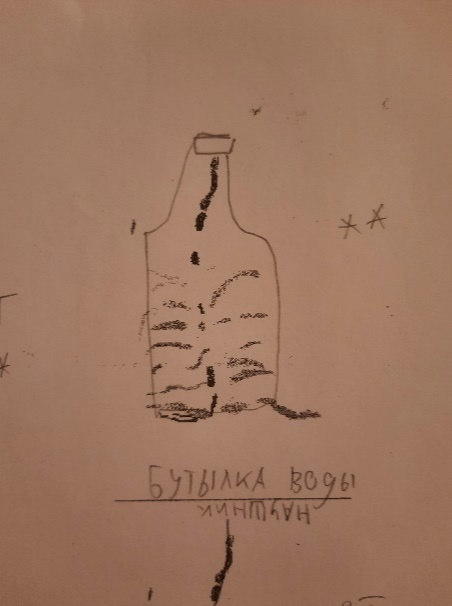 БУТЫЛКА ВОДЫ
НАУШНИК